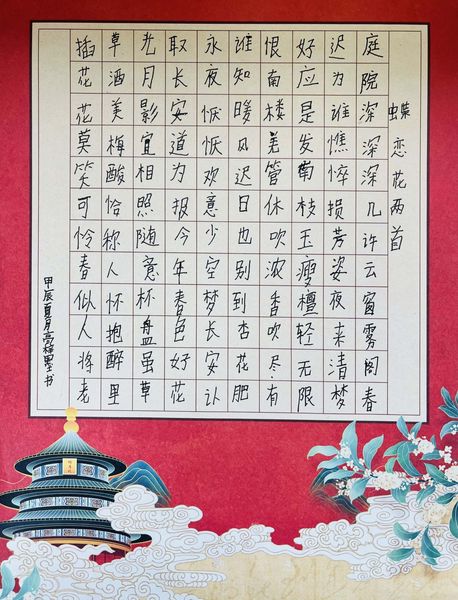 蝶恋花两首
庭院深深深几许云窗雾阁春
迟为谁憔悴损芳姿夜来清梦
好应是发南枝玉瘦檀轻无限
恨南楼羌管休吹浓香吹尽有
谁知暖风迟日也别到杏花肥
永夜恹恹欢意少空梦长安认
取长安道为报今年春色好花
光月影宜相照随意杯盘虽草
草酒美梅酸恰称人怀抱醉里
插花花莫笑可怜春似人将老
甲辰夏月亮桂墨书